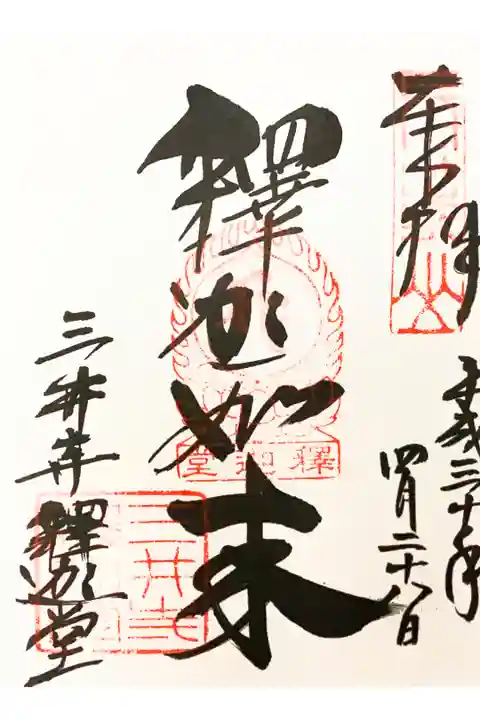 奉拝
平成三十年
四月二十八日
釋迦如来
釋迦堂
三井寺 釋迦堂
三井寺